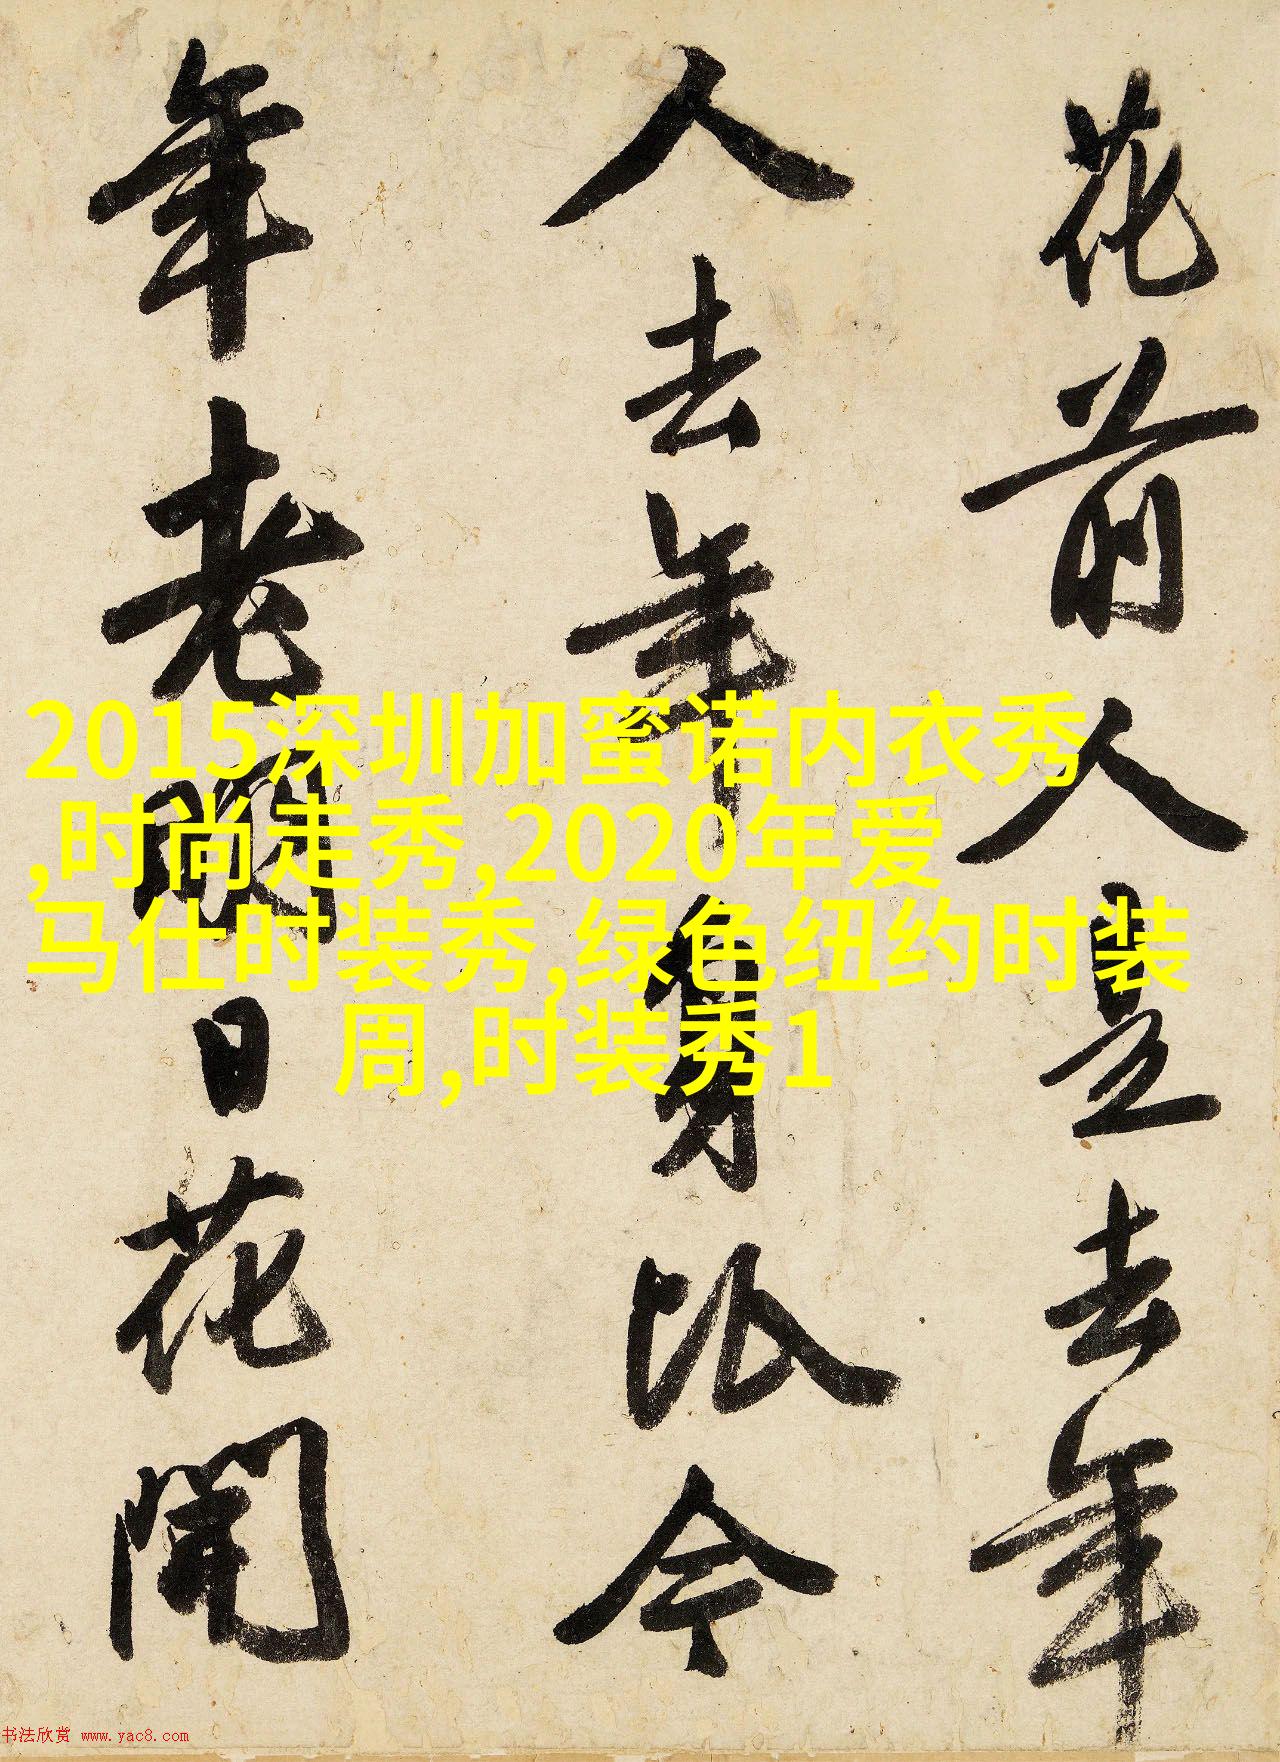 花前人是去年
人去年身比今
年老明日花開
2015深圳加蜜诺内衣秀
,时尚走秀,2020年爱
马仕时装秀,绿色纽约时装
周,时装秀1
书法欣赏 www.yac8.com